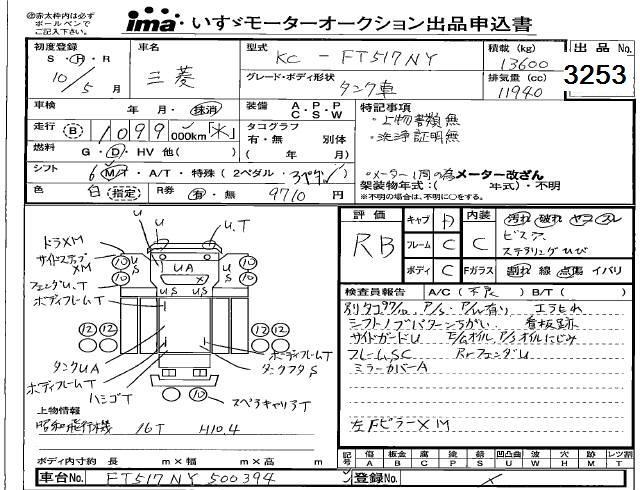 ※赤太枠内は必ず
ボールペンで
ご記入下さい。
ima いすゞモーターオークション出品申込書
初度登録 車名 型式 積載 (kg) 出品 No.
S・H・R 三菱 KC - FT517NY 13600 3253
10年 5月 グレード・ボディ形状 タンク車 排気量 (cc) 11940
車検 年 月・抹消 装備 A・P・P C・S・W 特記事項
・上物書類無
走行 B 1099 000km 米 タコグラフ 有・無 別体 ( 年 月)
・洗浄証明無
燃料 G・D・HV 他( )
シフト 6 M/T・A/T・特殊 (2ペダル・3ペダル) メーター改ざん
架装物年式:( 年式)・不明
※不明の場合は、不明に○をする。
色 白 指定 R券 有・無 9710 円
評価 RB キャブ D 内装 C 汚れ 破れ ヤコ スレ
フレーム C ビスア
ステアリングひび
ボディ C Fガラス 割れ 線 点傷 イバリ
検査員報告 A/C (不良) B/T ( )
シフトノブパターンちがい 看板跡
サイドガードU E/Gオイル P/Sオイルにじみ
フレームSC RrフェンダU
ミラーカバーA
左FピラーXM
U U U.T
ドラXM
サイドステップXM
フェンダU.T
ボディフレームT
UA X
U S U S
10 10 10 10
12 12 12 12
タンクUA
ボディフレームT
ハシゴT
ボディフレームT
タンクフタS
10
スペアキャリアT
上物情報
昭和飛行機 16T H10.4
ボディ内寸約 長 m×幅 m×高 m
記号 傷A 板金B 腐C 塗P 錆S 凹凸曲U 波W 穴H 跡M レツ割T
車台No. FT517NY 500394 登録No. ×